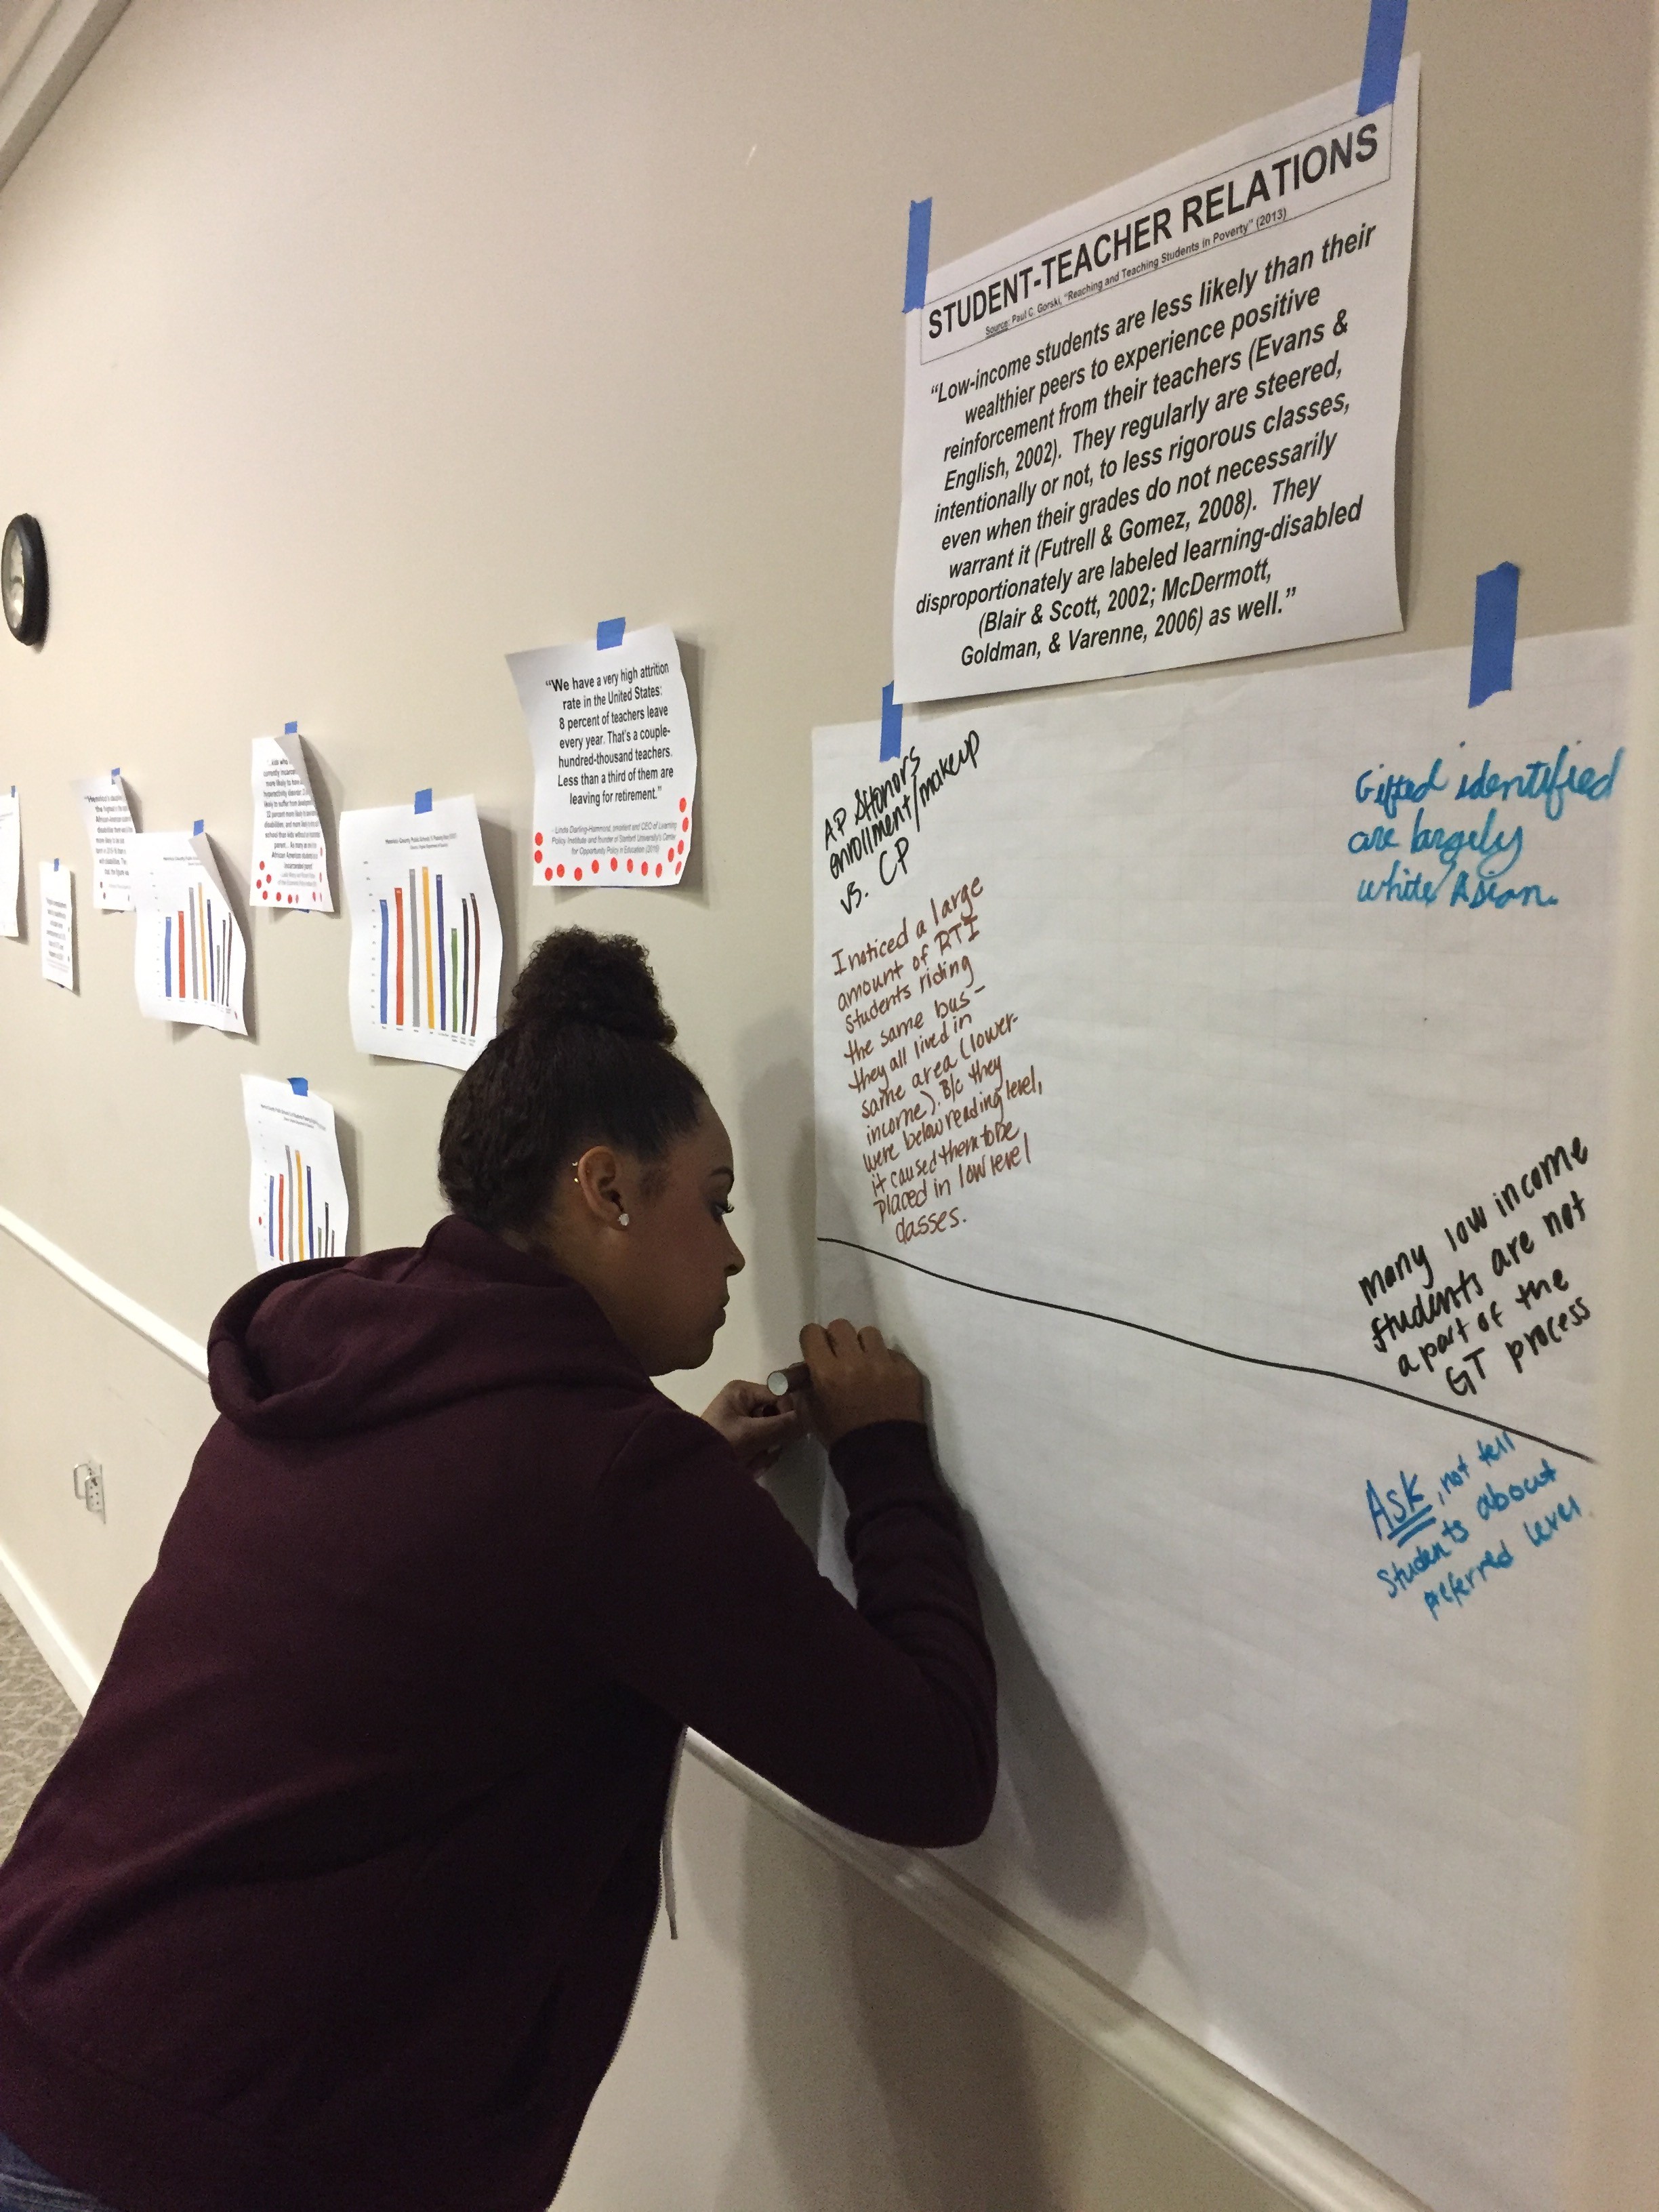 STUDENT-TEACHER RELATIONS
Source: Paul C. Gorski, "Reaching and Teaching Students in Poverty" (2013)
"Low-income students are less likely than their
wealthier peers to experience positive
reinforcement from their teachers (Evans &
English, 2002). They regularly are steered,
intentionally or not, to less rigorous classes,
even when their grades do not necessarily
warrant it (Futrell & Gomez, 2008). They
disproportionately are labeled learning-disabled
(Blair & Scott, 2002; McDermott,
Goldman, & Varenne, 2006) as well."
"We have a very high attrition
rate in the United States:
8 percent of teachers leave
every year. That's a couple-
hundred-thousand teachers.
Less than a third of them are
leaving for retirement."
- Linda Darling-Hammond, president and CEO of Learning
Policy Institute and founder of Stanford University's Center
for Opportunity Policy in Education (2016)
AP & Honors
enrollment/makeup
vs. CP
I noticed a large
amount of RTI
students riding
the same bus -
they all lived in
same area (lower-
income). B/c they
were below reading level,
it caused them to be
placed in low level
classes.
Gifted identified
are largely
white/Asian.
Many low income
students are not
a part of the
GT process
Ask, not tell
students about
preferred level.